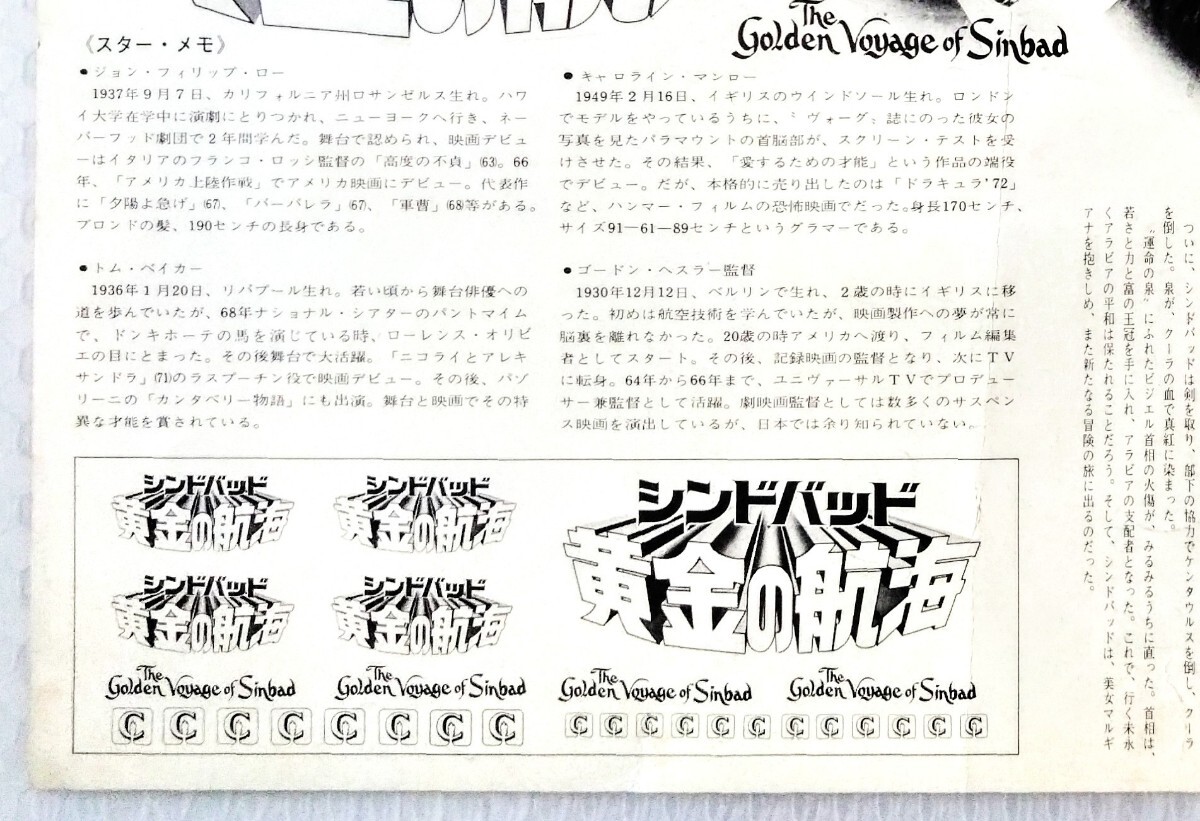 The
Golden Voyage of Sinbad
《スター・メモ》
●ジョン・フィリップ・ロー
1937年9月7日、カリフォルニア州ロサンゼルス生れ。ハワ
イ大学在学中に演劇にとりつかれ、ニューヨークへ行き、ネー
パーフッド劇団で2年間学んだ。舞台で認められ、映画デビュ
ーはイタリアのフランコ・ロッシ監督の「高度の不貞」(63)。66
年、「アメリカ上陸作戦」でアメリカ映画にデビュー。代表作
に「夕陽よ急げ」(67)、「バーバレラ」(67)、「軍曹」(68)等がある。
ブロンドの髪、190センチの長身である。
●トム・ベイカー
1936年1月20日、リバプール生れ。若い頃から舞台俳優への
道を歩んでいたが、68年ナショナル・シアターのパントマイム
で、ドンキホーテの馬を演じている時、ローレンス・オリビ
エの目にとまった。その後舞台で大活躍。「ニコライとアレキ
サンドラ」(71)のラスプーチン役で映画デビュー。その後、パゾ
リーニの「カンタベリー物語」にも出演。舞台と映画でその特
異な才能を賞されている。
●キャロライン・マンロー
1949年2月16日、イギリスのウインドソール生れ。ロンドン
でモデルをやっているうちに、〝ヴォーグ〟誌にのった彼女の
写真を見たパラマウントの首脳部が、スクリーン・テストを受
けさせた。その結果、「愛するための才能」という作品の端役
でデビュー。だが、本格的に売り出したのは「ドラキュラ'72」
など、ハンマー・フィルムの恐怖映画でだった。身長170センチ、
サイズ91—61—89センチというグラマーである。
●ゴードン・ヘスラー監督
1930年12月12日、ベルリンで生れ、2歳の時にイギリスに移
った。初めは航空技術を学んでいたが、映画製作への夢が常に
脳裏を離れなかった。20歳の時アメリカへ渡り、フィルム編集
者としてスタート。その後、記録映画の監督となり、次にTV
に転身。64年から66年まで、ユニヴァーサルTVでプロデュー
サー兼監督として活躍。劇映画監督としては数多くのサスペン
ス映画を演出しているが、日本では余り知られていない。
ついに、シンドバッドは剣を取り、部下の協力でケンタウルスを倒し、クーラ
を倒した。泉が、クーラの血で真紅に染まった。
〝運命の泉〟にふれたビジエル首相の火傷が、みるみるうちに直った。首相は、
若さと力と富の王冠を手に入れ、アラビアの支配者となった。これで、行く末永
くアラビアの平和は保たれることだろう。そして、シンドバッドは、美女マルギ
アナを抱きしめ、また新たなる冒険の旅に出るのだった。
シンドバッド
黄金の航海
シンドバッド
黄金の航海
シンドバッド
黄金の航海
シンドバッド
黄金の航海
The
Golden Voyage of Sinbad
The
Golden Voyage of Sinbad
シンドバッド
黄金の航海
The
Golden Voyage of Sinbad
The
Golden Voyage of Sinbad